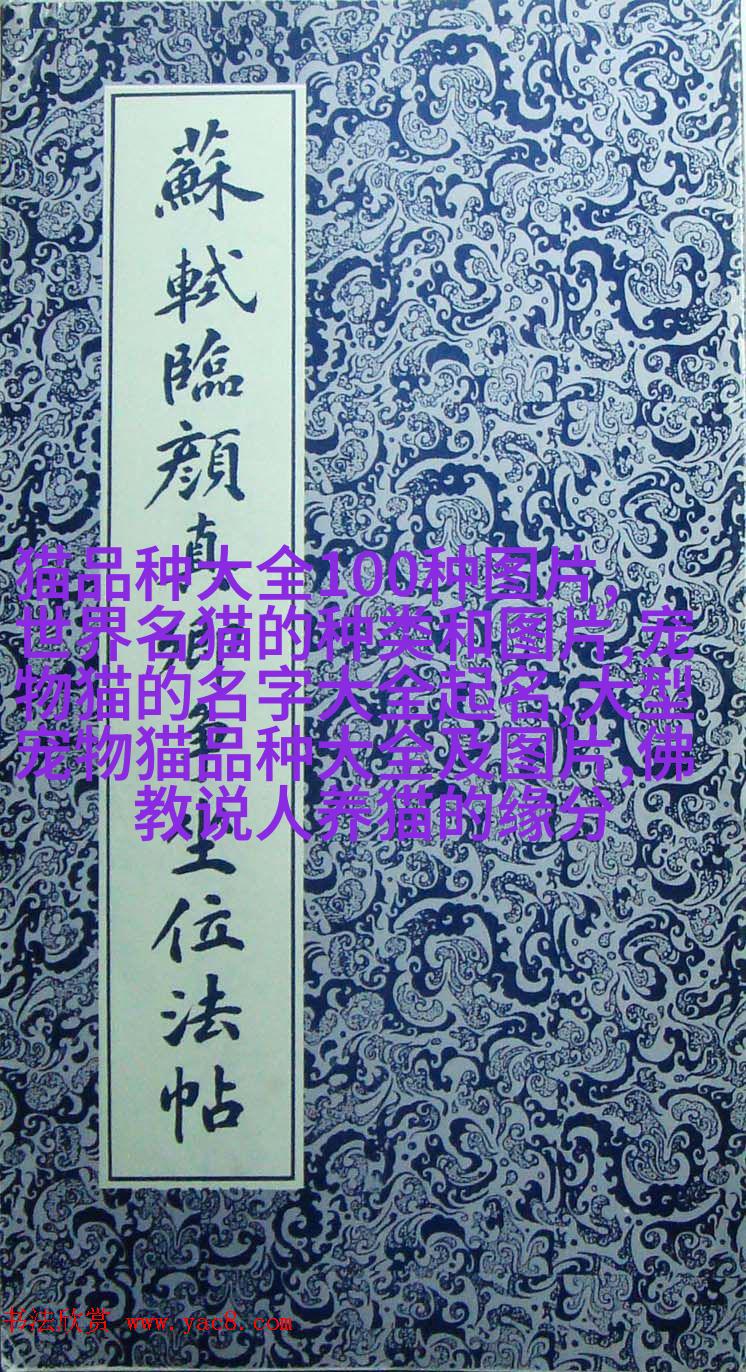 蘇軾臨顔真卿争坐位法帖
猫品种大全100种图片,
世界名猫的种类和图片,宠
物猫的名字大全起名,大型
宠物猫品种大全及图片,佛
教说人养猫的缘分
书法欣赏 www.yac8.com